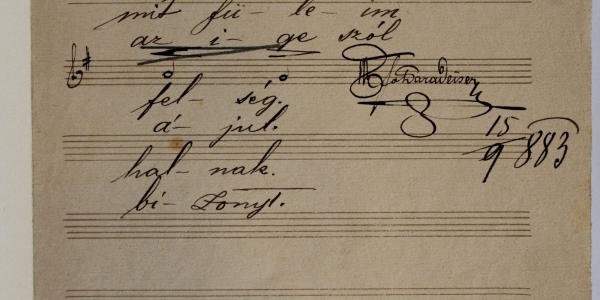 mit fü- le- im
az i- ge szól
fel- ség.
á- jul.
15
9 883
hal- nak.
bi- zonyt.